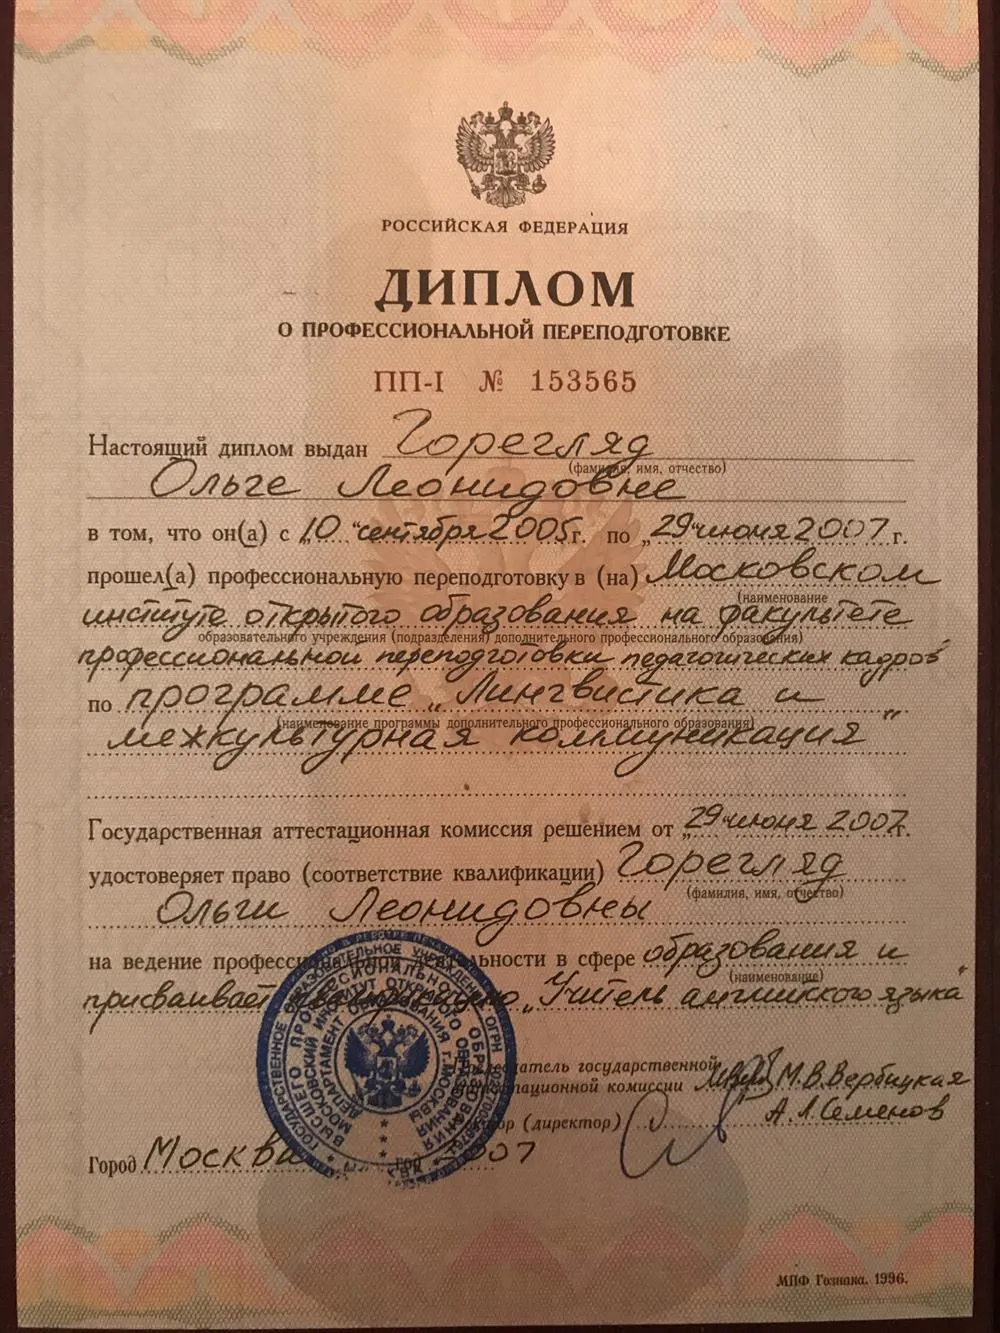 РОССИЙСКАЯ ФЕДЕРАЦИЯ
ДИПЛОМ
О ПРОФЕССИОНАЛЬНОЙ ПЕРЕПОДГОТОВКЕ
ПП-I № 153565
Настоящий диплом выдан Горегляд
(фамилия, имя, отчество)
Ольге Леонидовне
в том, что он(а) с „10 “ сентября 2005г. по „29“ июня 2007 г.
прошел(а) профессиональную переподготовку в (на) Московском
(наименование
институте открытого образования на факультете
образовательного учреждения (подразделения) дополнительного профессионального образования)
профессиональной переподготовки педагогических кадров
по программе „Лингвистика и
(наименование программы дополнительного профессионального образования)
межкультурная коммуникация"
Государственная аттестационная комиссия решением от „29“ июня 2007г.
удостоверяет право (соответствие квалификации) Горегляд
(фамилия, имя, отчество)
Ольги Леонидовны
на ведение профессиональной деятельности в сфере образования и
(наименование)
присваивает квалификацию „Учитель английского языка"
Председатель государственной
аттестационной комиссии М.В.Вербицкая
А.Л.Семенов
Ректор (директор)
Город Москва год 2007
МОСКОВСКИЙ ИНСТИТУТ ОТКРЫТОГО ОБРАЗОВАНИЯ
ДЕПАРТАМЕНТ ОБРАЗОВАНИЯ г.МОСКВЫ
МПФ Гознака. 1996.